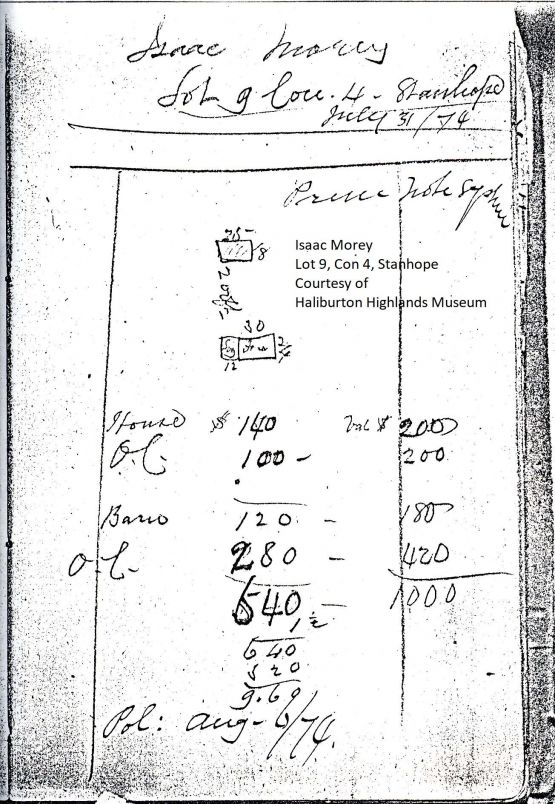 Isaac Morey
Lot 9 Con. 4 - Stanhope
July 31/74
25
18
Isaac Morey
Lot 9, Con 4, Stanhope
Courtesy of
Haliburton Highlands Museum
30
12
House $ 140 Val $ 200
O.C. 100 - 200
Barn 120 - 180
O.C. 280 - 420
640 - 1000
1 ½
640
320
9.60
Pol: Aug - 6/74.